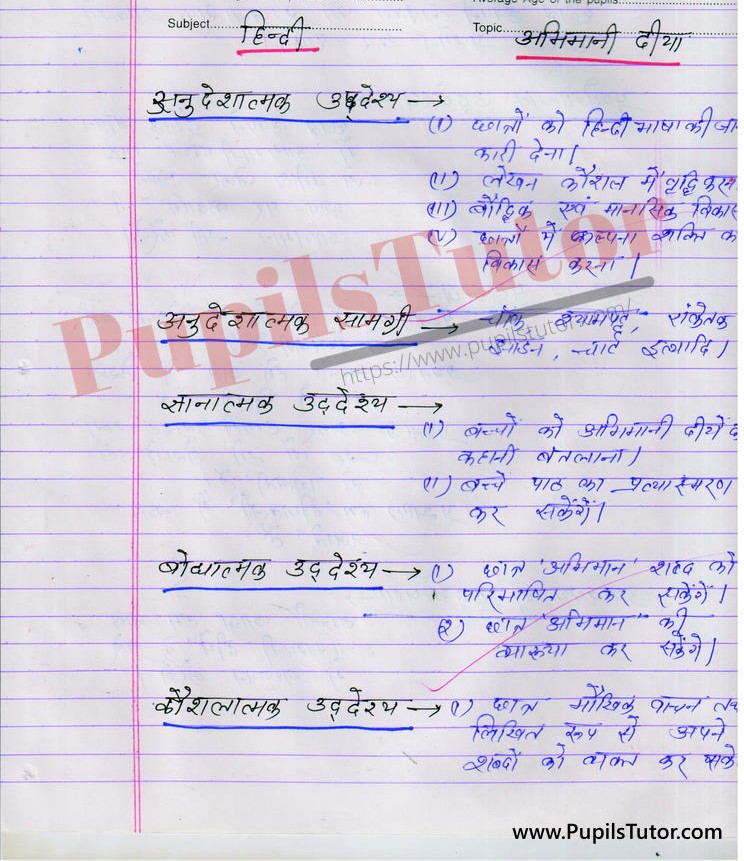 Average Age of the pupils
Subject हिन्दी Topic अभिमानी दीया
अनुदेशात्मक उद्देश्य →
(I) छात्रों को हिन्दी भाषा की जान
कारी देना।
(II) लेखन कौशल में वृद्धि करना
(III) बौद्धिक एवं मानसिक विकास
(IV) छात्रों में कल्पना शक्ति क
विकास करना।
अनुदेशात्मक सामग्री → चॉक, श्यामपट्ट, संकेतक
झाडन, चार्ट इत्यादि।
ज्ञानात्मक उद्देश्य →
(I) बच्चों को अभिमानी दीयें
कहानी बतलाना।
(II) बच्चे पाठ का प्रत्यास्मरण
कर सकेंगें।
बोधात्मक उद्देश्य → (I) छात्र 'अभिमान' शब्द को
परिभाषित कर सकेंगें।
(2) छात्र 'अभिमान' की
व्याख्या कर सकेंगे।
कौशलात्मक उद्देश्य → (1) छात्र मौखिक वाचन
लिखित रूप से अपने
शब्दों को व्यक्त कर सके
PupilsTutor
https://www.pupilstutor.com/
www.PupilsTutor.com